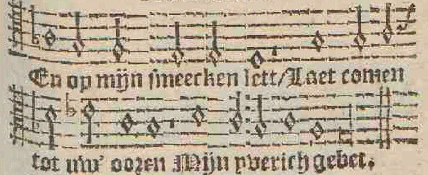 En op mijn smeecken lett/Laet comen
tot uw' ooren Mijn yverich gebet.